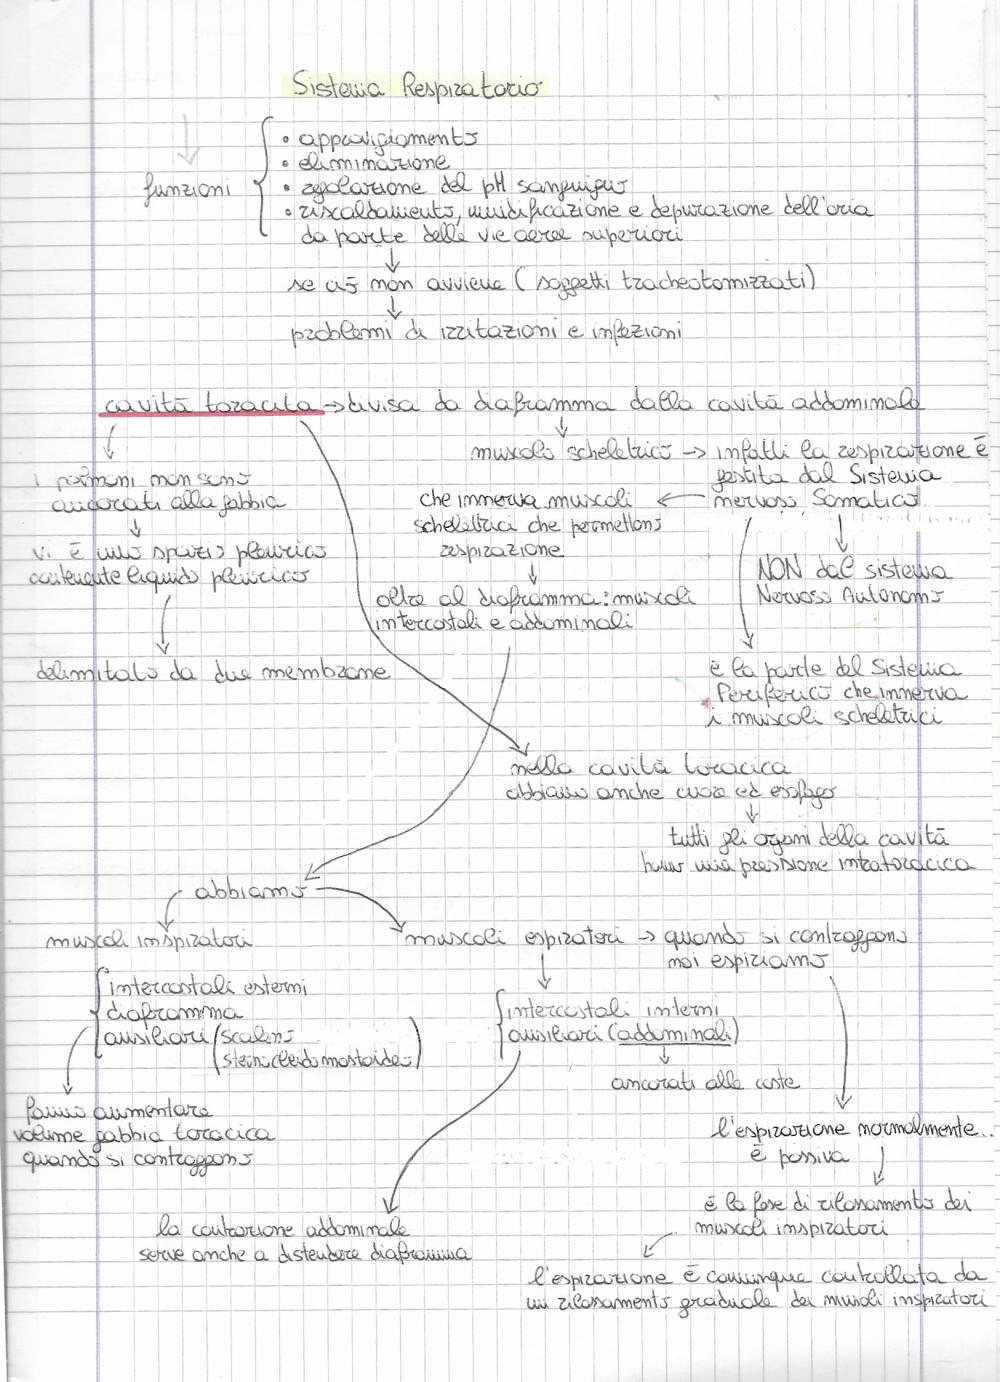 Sistema Respiratorio
funzioni
• approvigiamento
• eliminazione
• regolazione del pH sanguigno
• riscaldamento, umidificazione e depurazione dell'aria
da parte delle vie aeree superiori
↓
se ciò non avviene (soggetti tracheotomizzati)
↓
problemi di irritazioni e infezioni
cavità toracica → divisa da diaframma dalla cavità addominale
muscolo scheletrico → infatti la respirazione è
gestita dal Sistema
nervoso Somatico
i polmoni non sono
ancorati alla gabbia
↓
vi è uno spazio pleurico
contenente liquido pleurico
delimitato da due membrane
che innerva muscoli
scheletrici che permettono
respirazione
↓
oltre al diaframma: muscoli
intercostali e addominali
NON dal sistema
Nervoso Autonomo
è la parte del Sistema
Periferico che innerva
i muscoli scheletrici
nella cavità toracica
abbiamo anche cuore ed esofago
↓
tutti gli organi della cavità
hanno una pressione intratoracica
abbiamo
muscoli inspiratori
intercostali esterni
diaframma
ausiliari (scaleno
sternocleidomastoideo)
fanno aumentare
volume gabbia toracica
quando si contraggono
muscoli espiratori → quando si contraggono
noi espiriamo
intercostali interni
ausiliari (addominali)
↓
ancorati alle coste
la contrazione addominale
serve anche a distendere diaframma
l'espirazione normalmente..
è passiva
è la fase di rilassamento dei
muscoli inspiratori
l'espirazione è comunque controllata da
un rilassamento graduale dei muscoli inspiratori